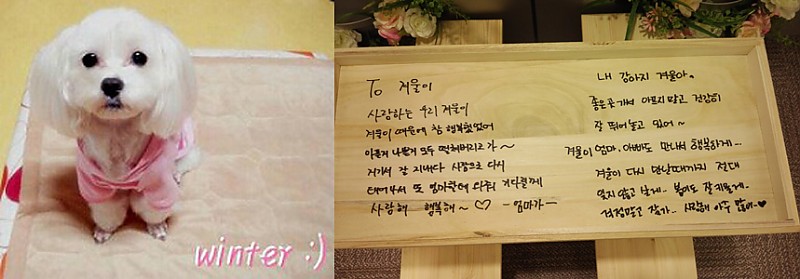 winter :)
To 겨울이
사랑하는 우리 겨울이
겨울이 때문에 참 행복했었어
아픈거 나쁜거 모두 떨쳐버리고 가~
거기서 잘 지내다 사람으로 다시
태어나서 또 엄마한테 기다릴게
사랑해 행복해~ ♡ -엄마가-
내 강아지 겨울아,
좋은곳 가서 아프지말고 건강히
잘 뛰어놀고 있어~
겨울이 엄마, 아빠도 만나서 행복하게...
겨울이 다시 만날때까지 절대
잊지않고 살게.. 봄이도 잘키울게..
걱정말고 잘가.. 사랑해 아주 많이~♥